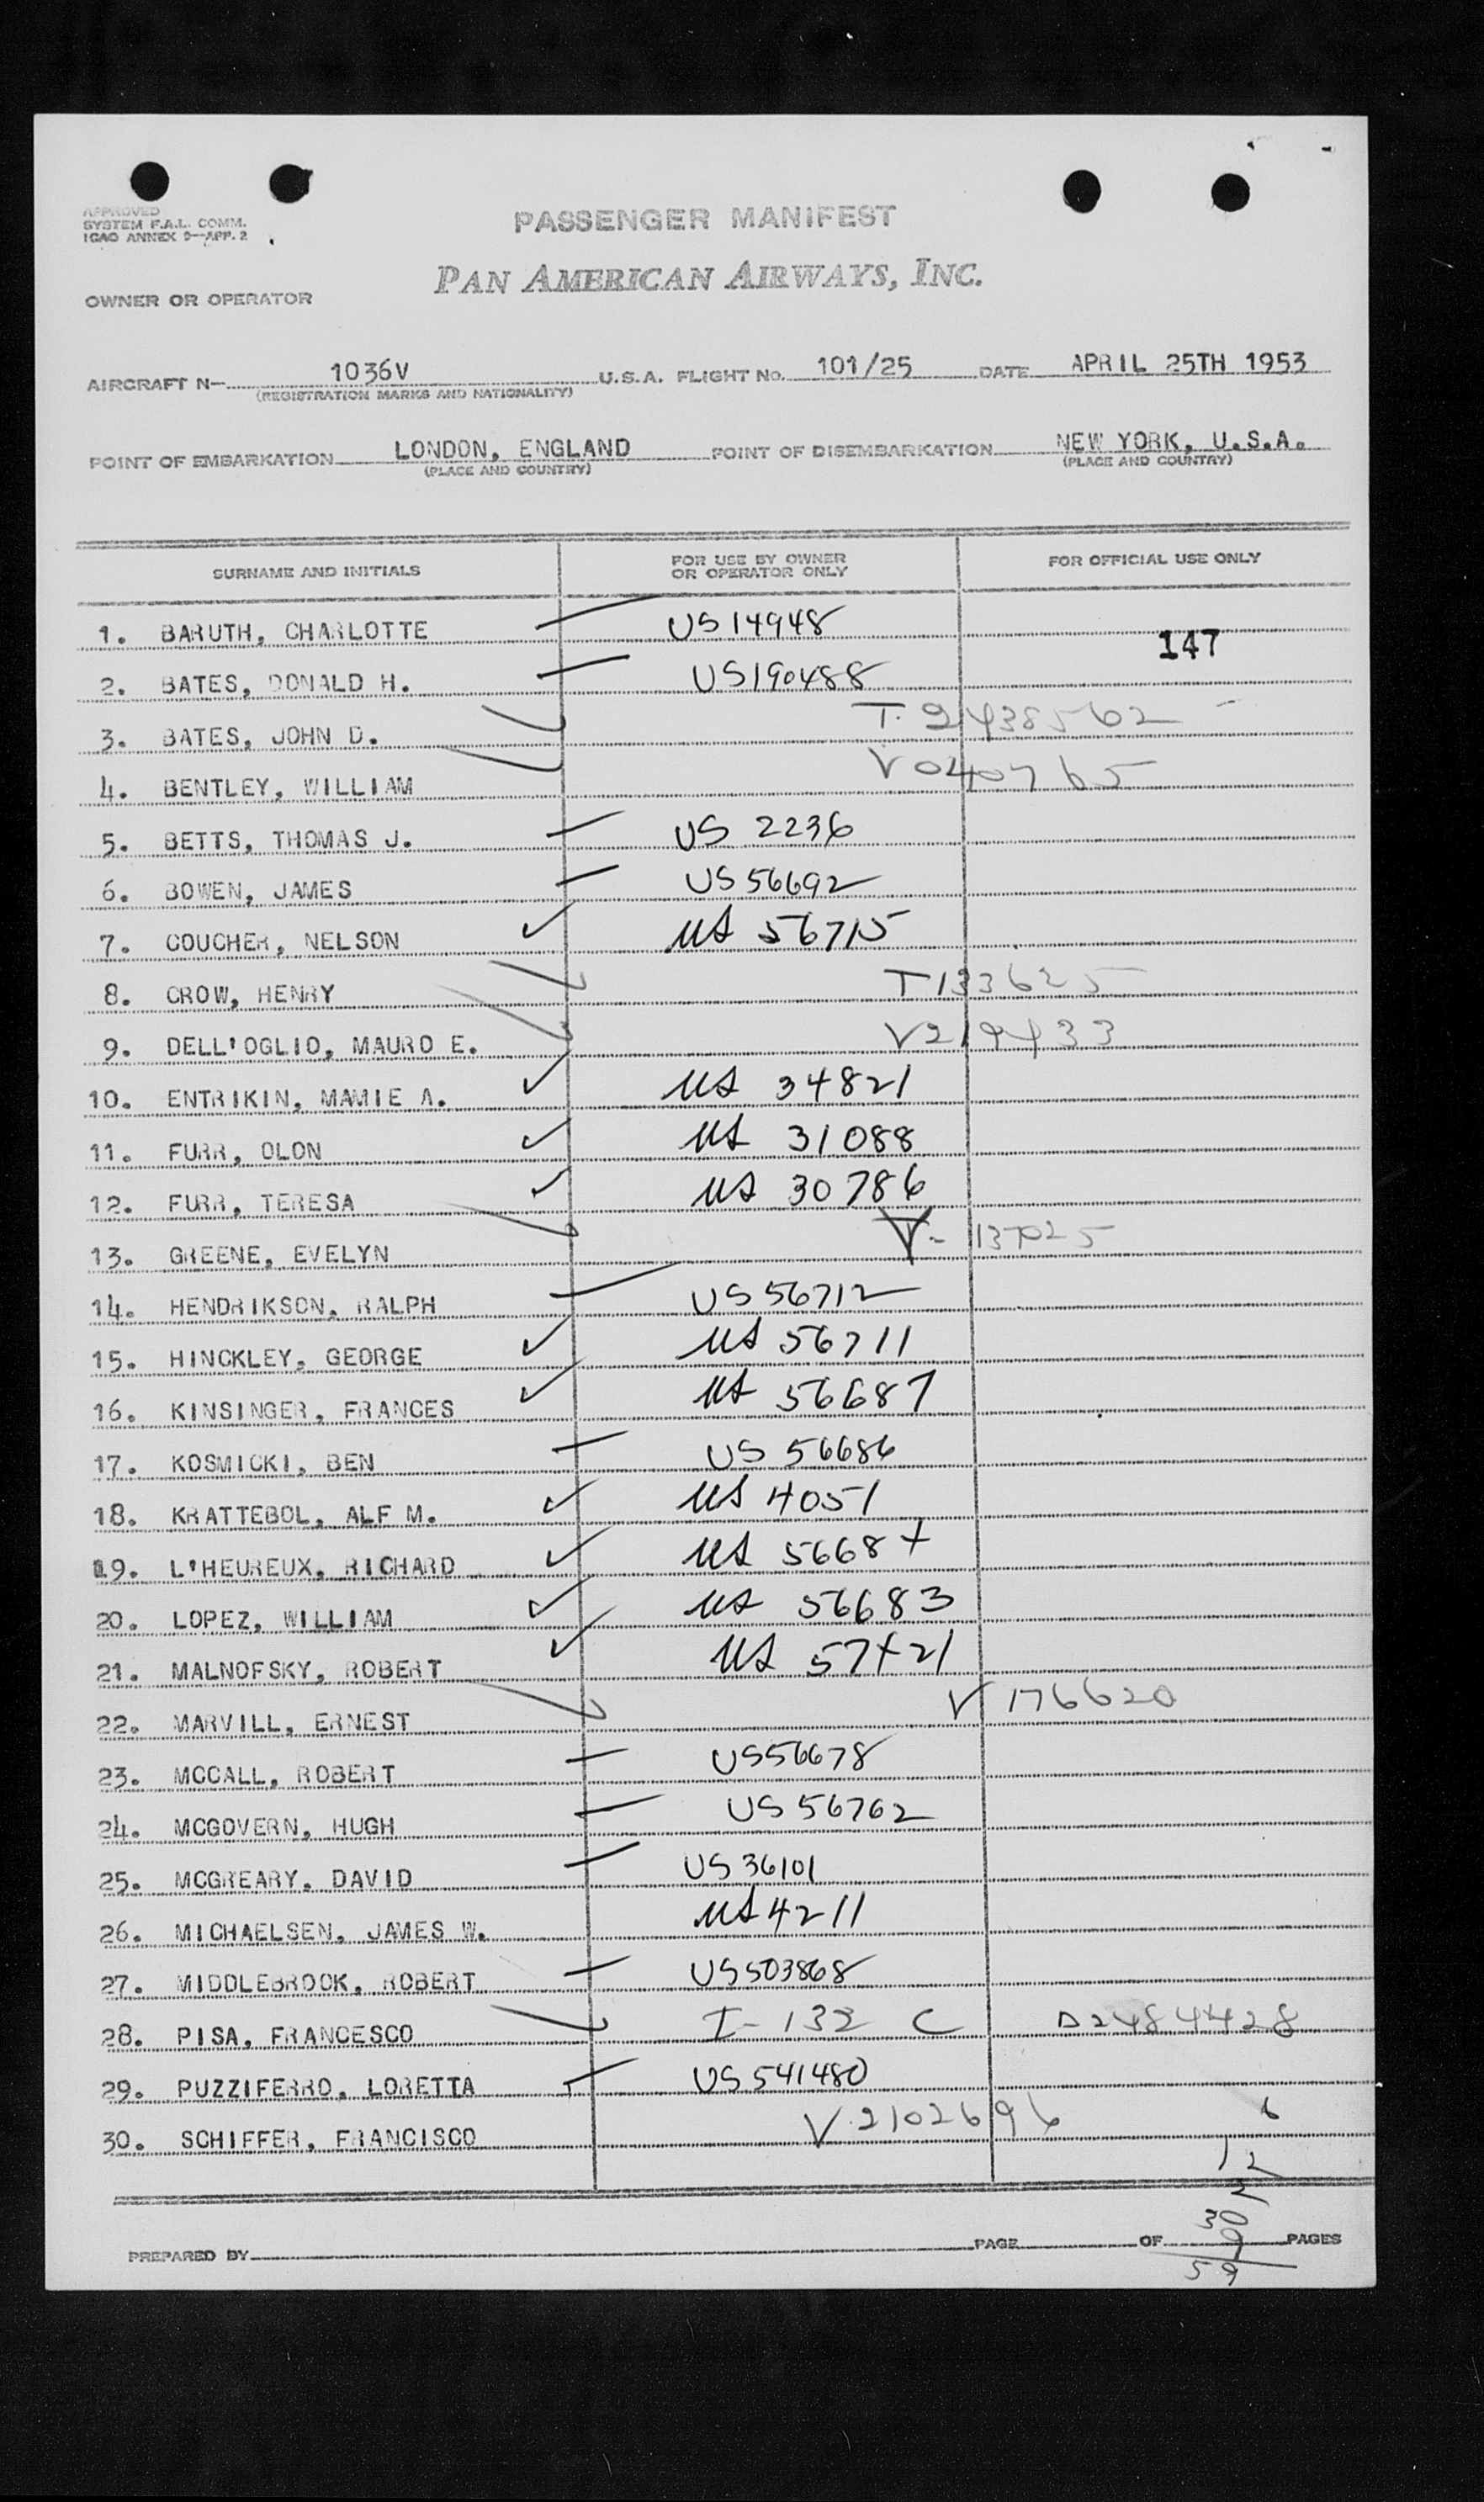 APPROVED
SYSTEM F.A.L. COMM.
ICAO ANNEX 9—APP. 2
PASSENGER MANIFEST
PAN AMERICAN AIRWAYS, INC.
OWNER OR OPERATOR
AIRCRAFT N— 1036V U.S.A. FLIGHT NO. 101/25 DATE APRIL 25TH 1953
(REGISTRATION MARKS AND NATIONALITY)
POINT OF EMBARKATION LONDON, ENGLAND POINT OF DISEMBARKATION NEW YORK, U.S.A.
(PLACE AND COUNTRY) (PLACE AND COUNTRY)
SURNAME AND INITIALS FOR USE BY OWNER OR OPERATOR ONLY FOR OFFICIAL USE ONLY
1. BARUTH, CHARLOTTE US 14948
147
2. BATES, DONALD H. US 190488
3. BATES, JOHN D. T. 2438562
4. BENTLEY, WILLIAM V 040765
5. BETTS, THOMAS J. US 2236
6. BOWEN, JAMES US 56692
7. COUCHER, NELSON US 56715
8. CROW, HENRY T133625
9. DELL'OGLIO, MAURO E. V219433
10. ENTRIKIN, MAMIE A. US 34821
11. FURR, OLON US 31088
12. FURR, TERESA US 30786
13. GREENE, EVELYN V-
14. HENDRIKSON, RALPH US 56712
15. HINCKLEY, GEORGE US 56711
16. KINSINGER, FRANCES US 56687
17. KOSMICKI, BEN US 56686
18. KRATTEBOL, ALF M. US 4051
19. L'HEUREUX, RICHARD US
20. LOPEZ, WILLIAM US 56683
21. MALNOFSKY, ROBERT US
22. MARVILL, ERNEST V 176620
23. MCCALL, ROBERT US56678
24. MCGOVERN, HUGH US 56762
25. MCGREARY, DAVID US 36101
26. MICHAELSEN, JAMES W. US 4211
27. MIDDLEBROOK, ROBERT US503868
28. PISA, FRANCESCO I-132 C D2484428
29. PUZZIFERRO, LORETTA US 541480
30. SCHIFFER, FRANCISCO V.2102696
6
12
2
30
9
59
PREPARED BY PAGE OF PAGES